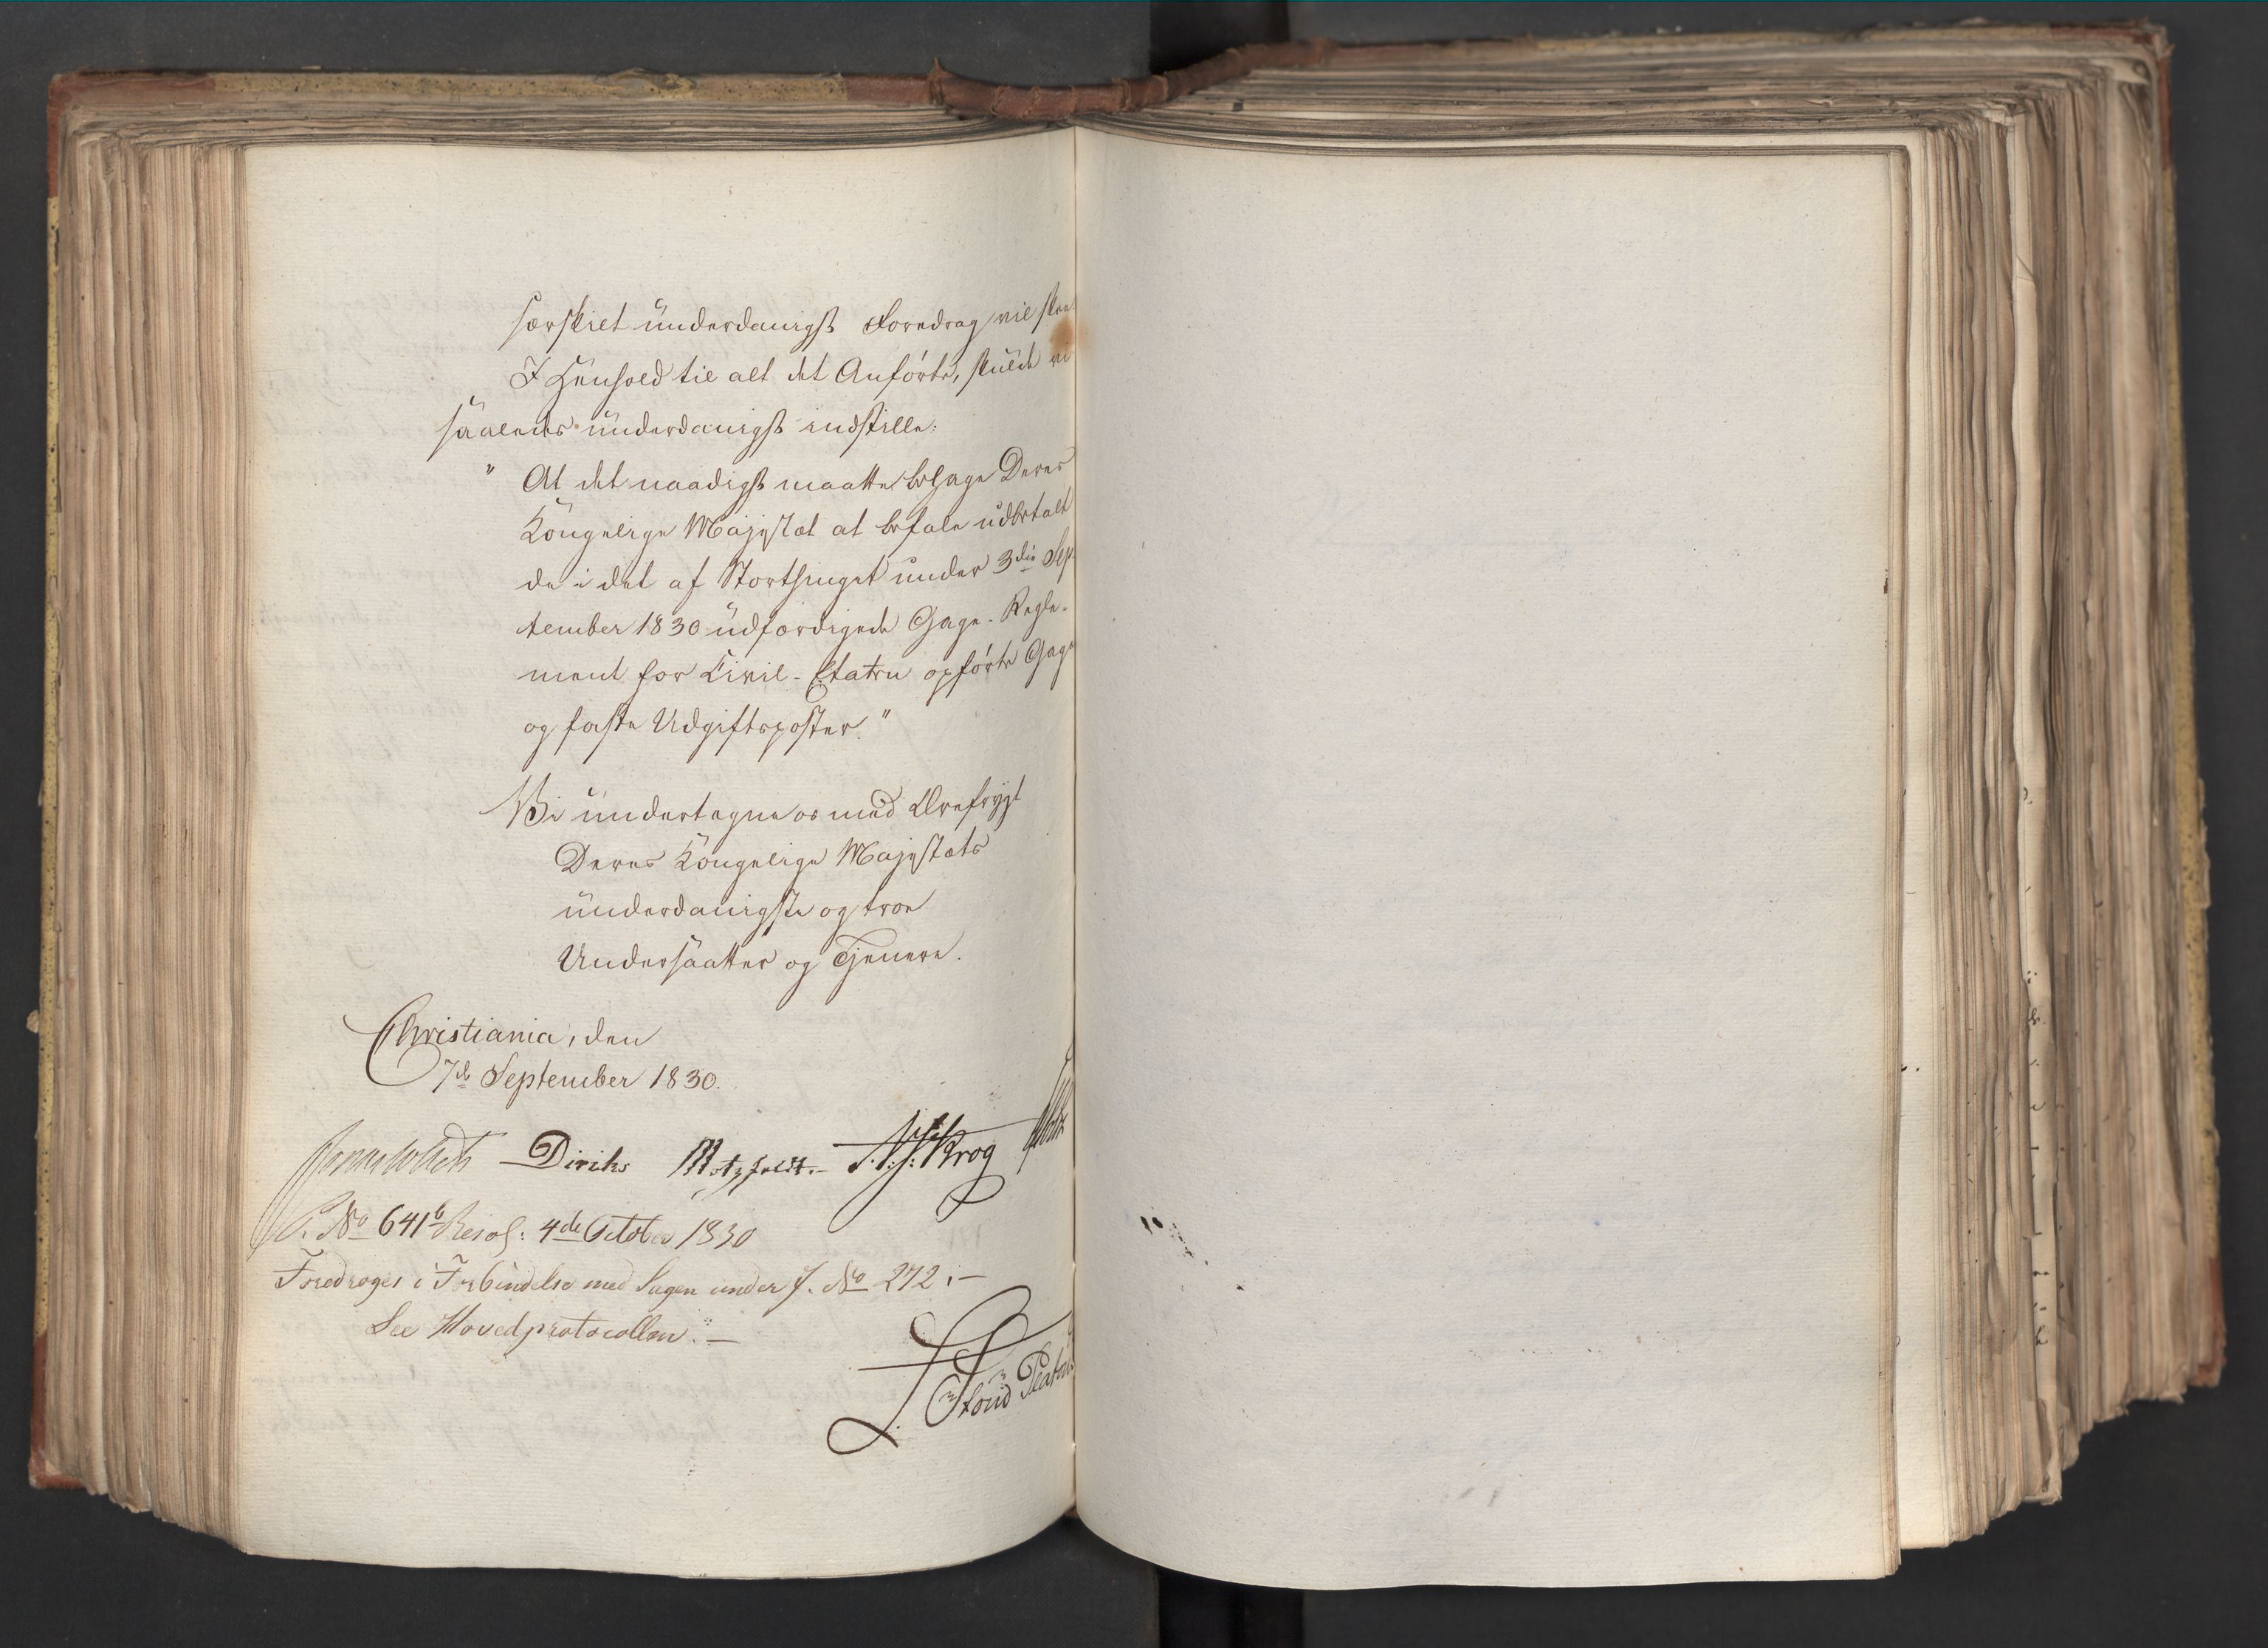 særskilt underdanigst Foredrag vil skee
I Henhold til alt det Anførte, skulde vi
saaledes underdanigst indstille:
" At det naadigst maatte behage Deres
Kongelige Majestæt at befale udbetalt
de i det af Storthinget under 3die Sep
tember 1830 udfærdigede Gage-Regle-
ment for Civil-Etaten opførte Gage
og faste Udgiftsposter."
Vi undertegne os med Ærefrygt
Deres Kongelige Majestæts
underdanigste og troe
Undersaatter og Tjenere.
Christiania, den
7de September 1830.
Diriks Motzfeldt. Krog
No 641b Resol: 4de October 1830
Foredrages i Forbindelse med Sagen under J. No 272.-
See Hovedprotocollen.-